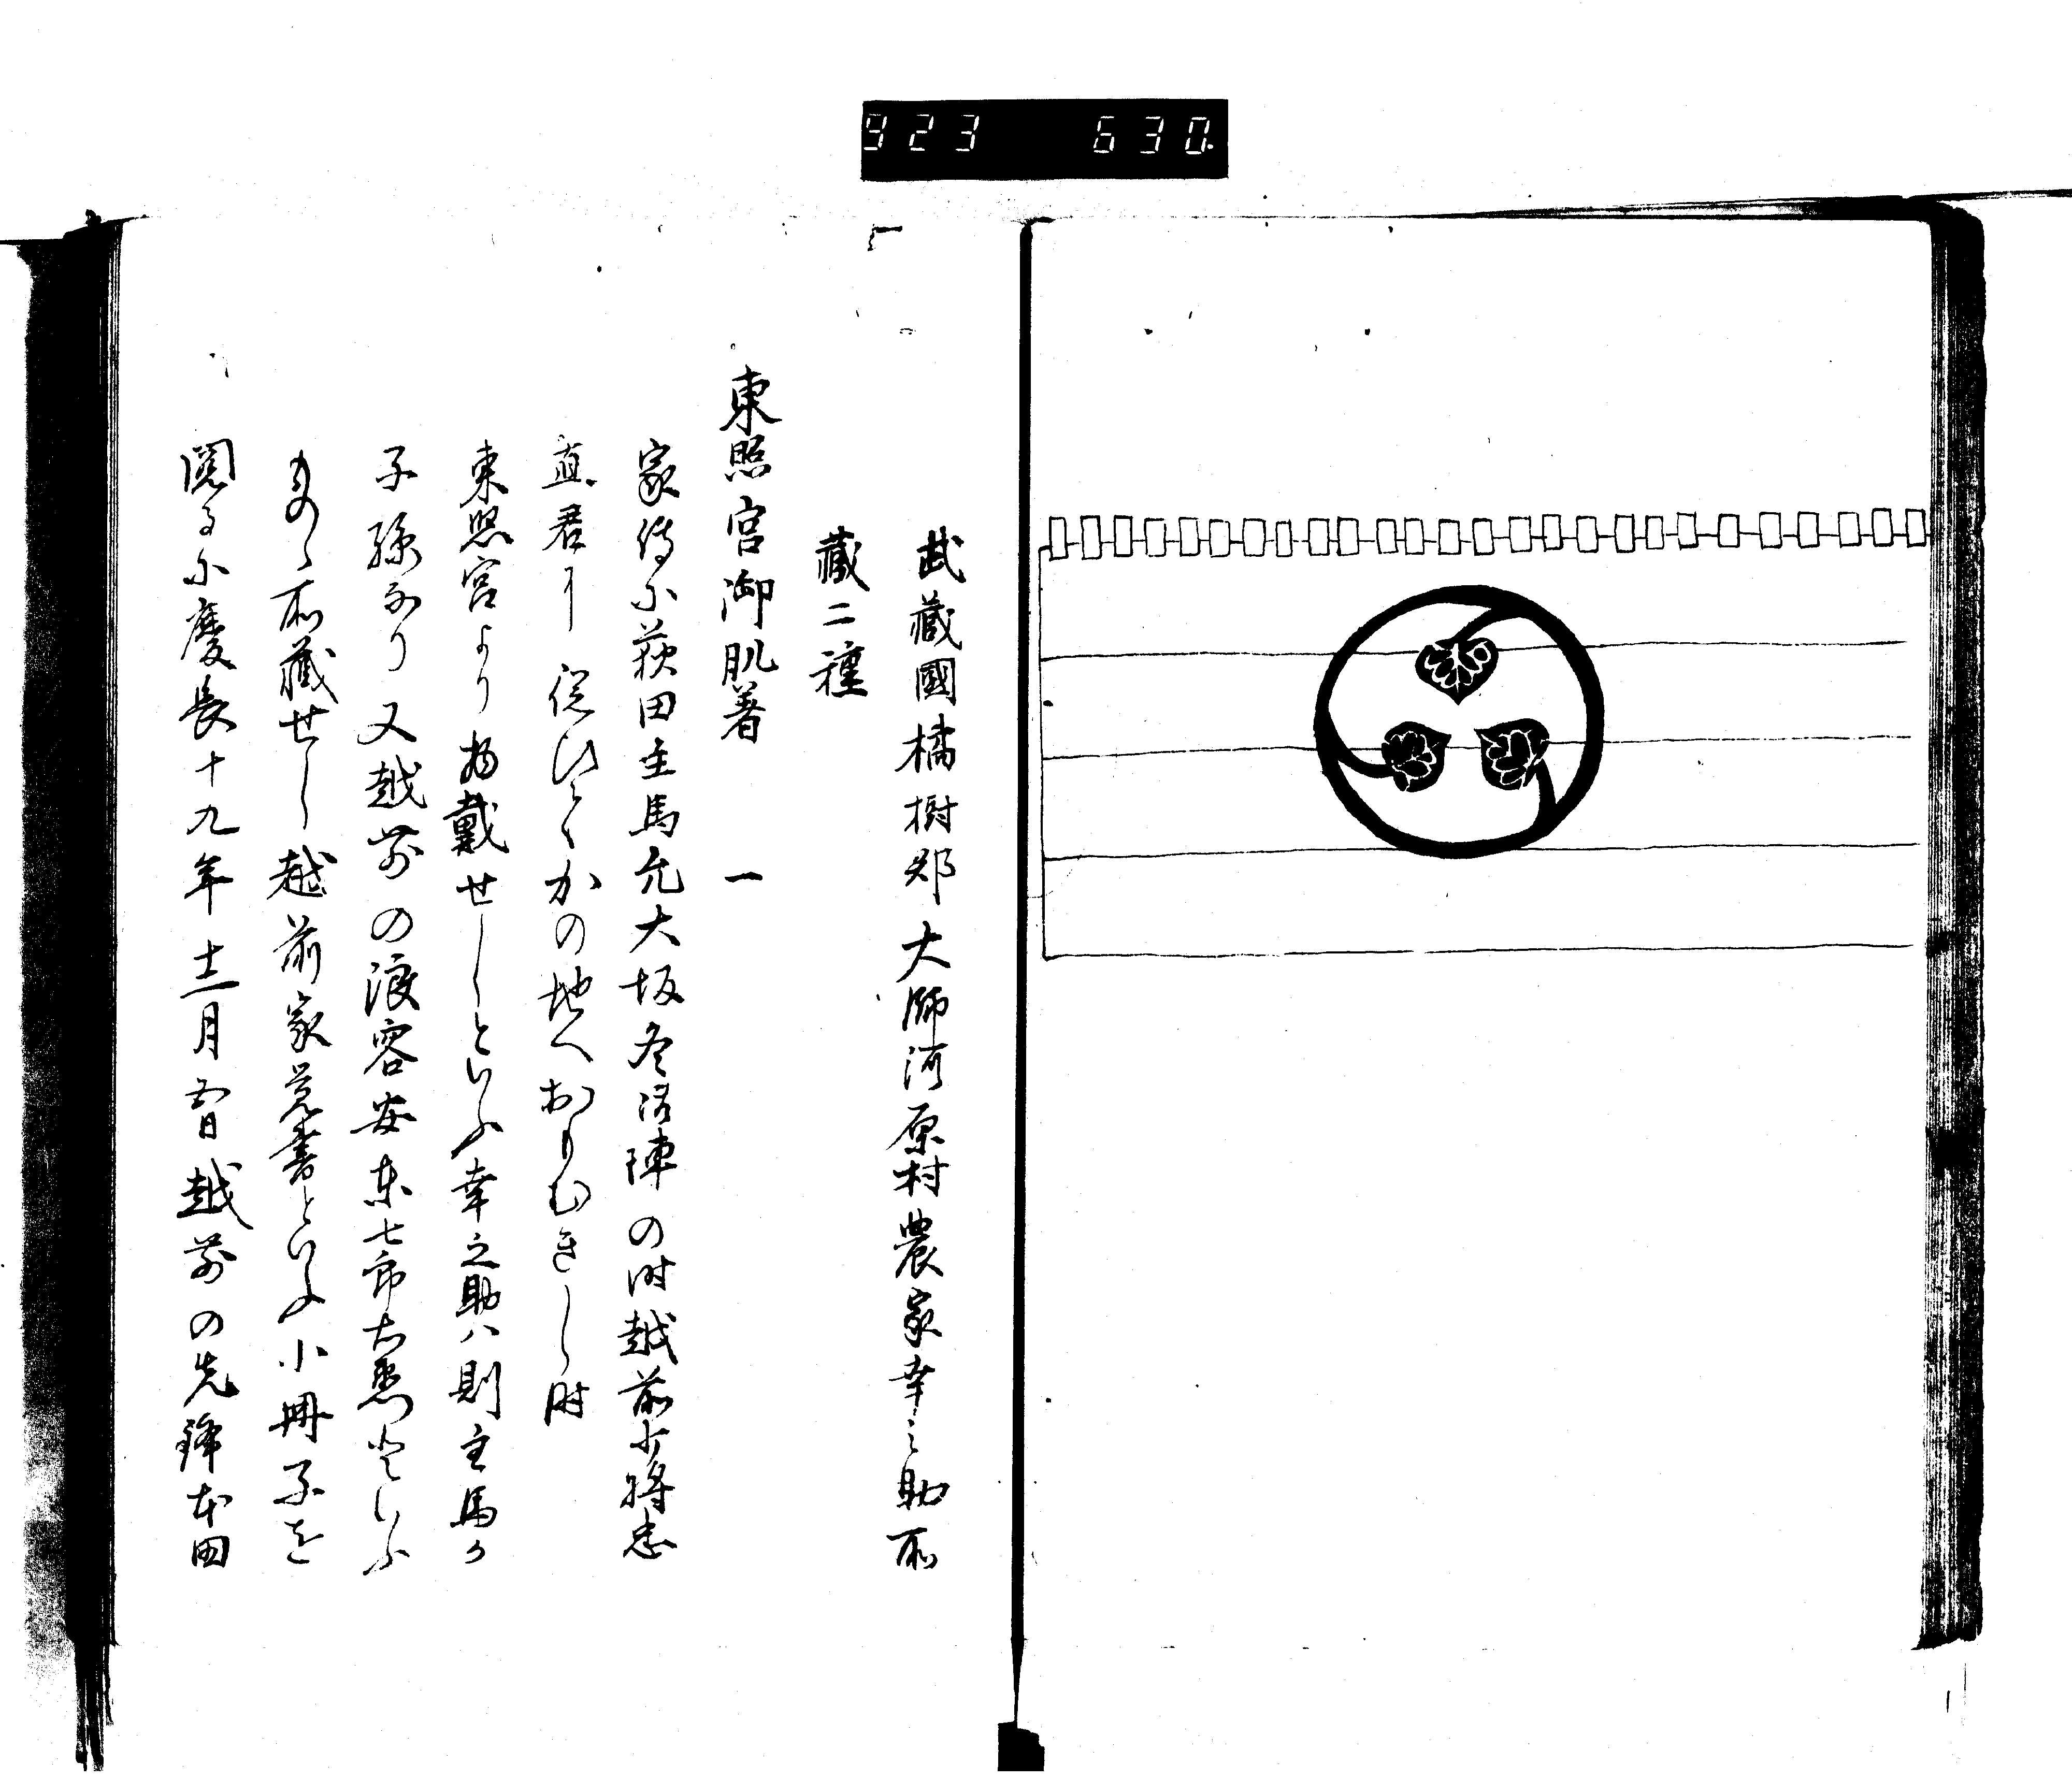 923 630.
武藏國橘樹郡大師河原村農家幸之助所
藏二種
東照宮御肌著 一
家傳小荻田主馬允大坂冬御陣の時越前少将忠
直君に従ひてかの地へおもむきし時
東照宮より拝戴せしといふ幸之助ハ則主馬か
子孫なり又越前の浪客安東七郎右衛門といふ
もの所藏せし越前家覚書といふ小冊子を
閲るに慶長十九年十二月四日越前の先鋒本田